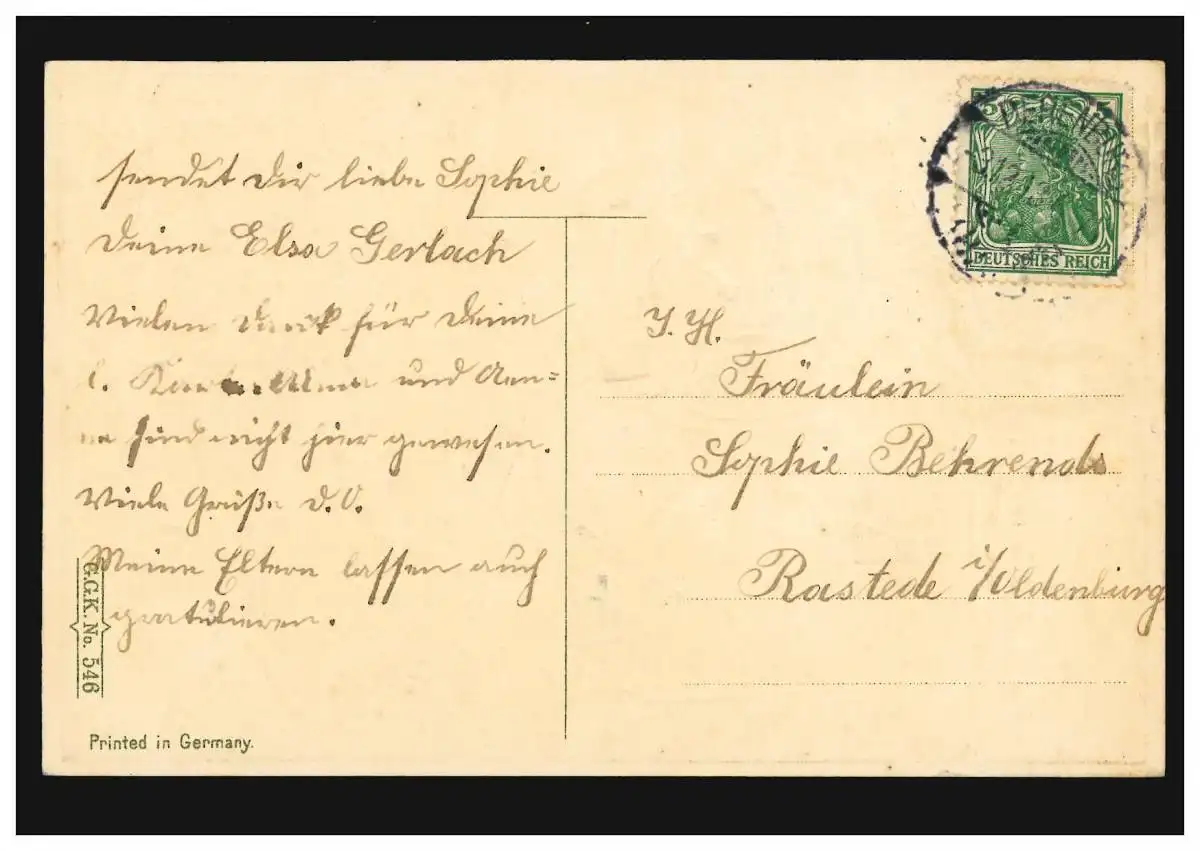 sendet dir liebe Sophie
Deine Elsa Gerlach
Vielen Dank für Deine
l. und Aen=
ne sind nicht hier gewesen.
Viele Grüße d. O.
Meine Eltern lassen auch
gratulieren.
G.G.K. No. 546
Printed in Germany.
5 5
DEUTSCHES REICH
I. H.
Fräulein
Sophie Behrends
Rastede i/Oldenburg